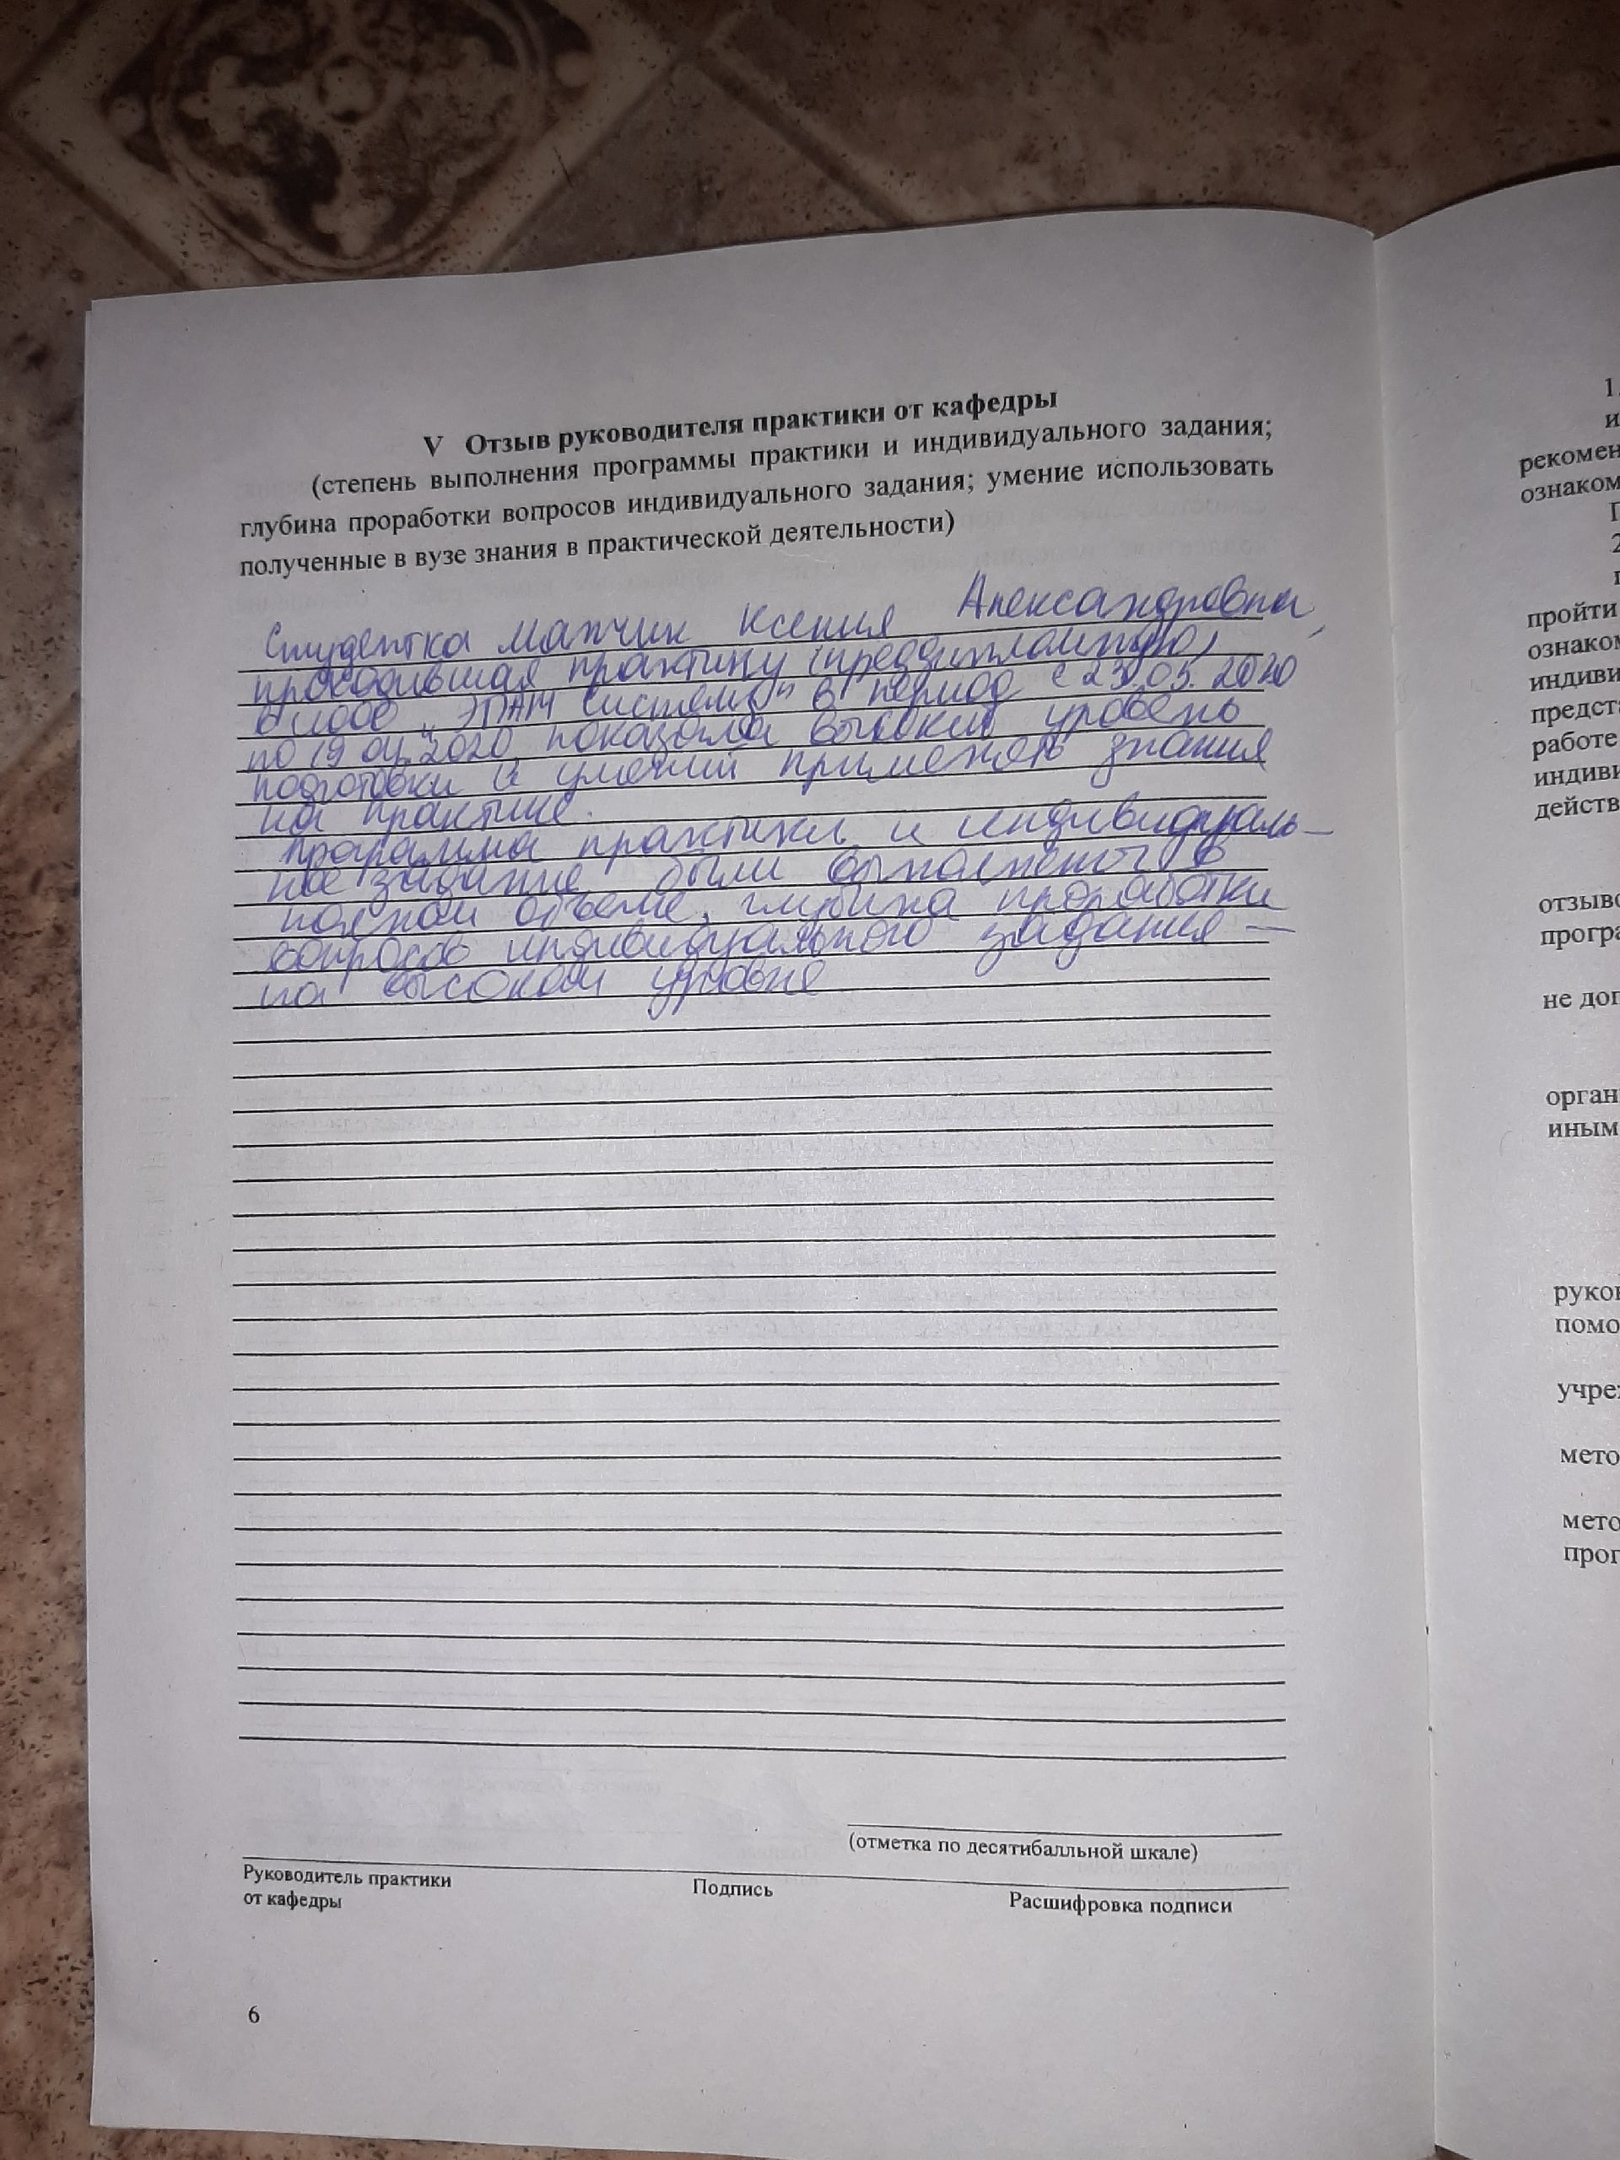 V Отзыв руководителя практики от кафедры
(степень выполнения программы практики и индивидуального задания;
глубина проработки вопросов индивидуального задания; умение использовать
полученные в вузе знания в практической деятельности)
Студентка Ксения Александровна,
проходившая практику (преддипломную)
в "ЭПАМ Системз" в период с 2020
по 19 04. 2020 показала высокий уровень
подготовки и умений применять знания
на практике.
Программа практики и индивидуаль-
ное задание были выполнены в
полном объеме, глубина проработки
вопросов индивидуального задания —
на высоком уровне
(отметка по десятибалльной шкале)
Руководитель практики
от кафедры
Подпись
Расшифровка подписи
6
1.
и
рекомен
ознаком
П
2
п
пройти
ознаком
индиви
предст
работе
индиви
действ
отзыво
програ
не доп
орган
иным
руков
помо
учре
мето
мето
прог